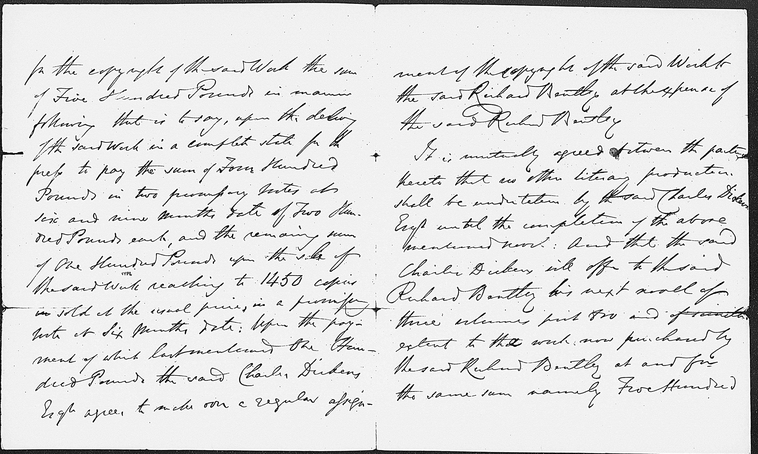 for the copyright of the said Work the sum
of Five Hundred Pounds in manner
following that is to say, upon the delivery
of the said Work in a complete state for the
press to pay the sum of Four Hundred
Pounds in two promissory notes at
six and nine months date of Two Hun-
dred Pounds each, and the remaining sum
of One Hundred Pounds upon the sale of
the said Work reaching to 1450 copies
sold at the usual prices, in a promissory
note at Six Months date: Upon the pay-
ment of which last mentioned One Hun-
dred Pounds the said Charles Dickens
Esqre agrees to make over a regular assign-
ment of the copyright of the said Work to
the said Richard Bentley at the expense of
the said Richard Bentley
It is mutually agreed between the parties
hereto that no other literary production
shall be undertaken by the said Charles Dickens
Esqre until the completion of the above
mentioned novel: And that the said
Charles Dickens will offer to the said
Richard Bentley his next novel of
three volumes post 8vo and of similar
extent to that work now purchased by
the said Richard Bentley at and for
the same sum namely Five Hundred